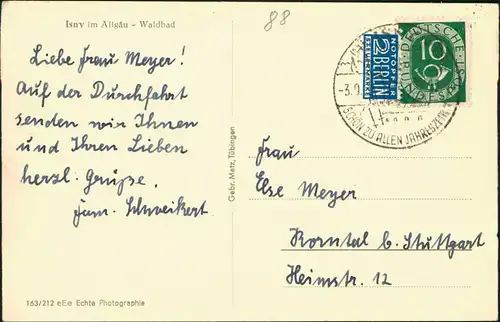 Isny im Allgäu - Waldbad
88
Liebe Frau Meyer!
Auf der Durchfahrt
senden wir Ihnen
und Ihren Lieben
herzl. Grüße.
Fam. Schweikert.
Gebr. Metz, Tübingen
NOTOPFER
2 BERLIN
STEUERMARKE
DEUTSCHE
BUNDESPOST
10
-3.9.
SCHÖN ZU ALLEN JAHRESZEITEN
Frau
Else Meyer
Korntal b. Stuttgart
Heimstr. 12
163/212 eEe Echte Photographie